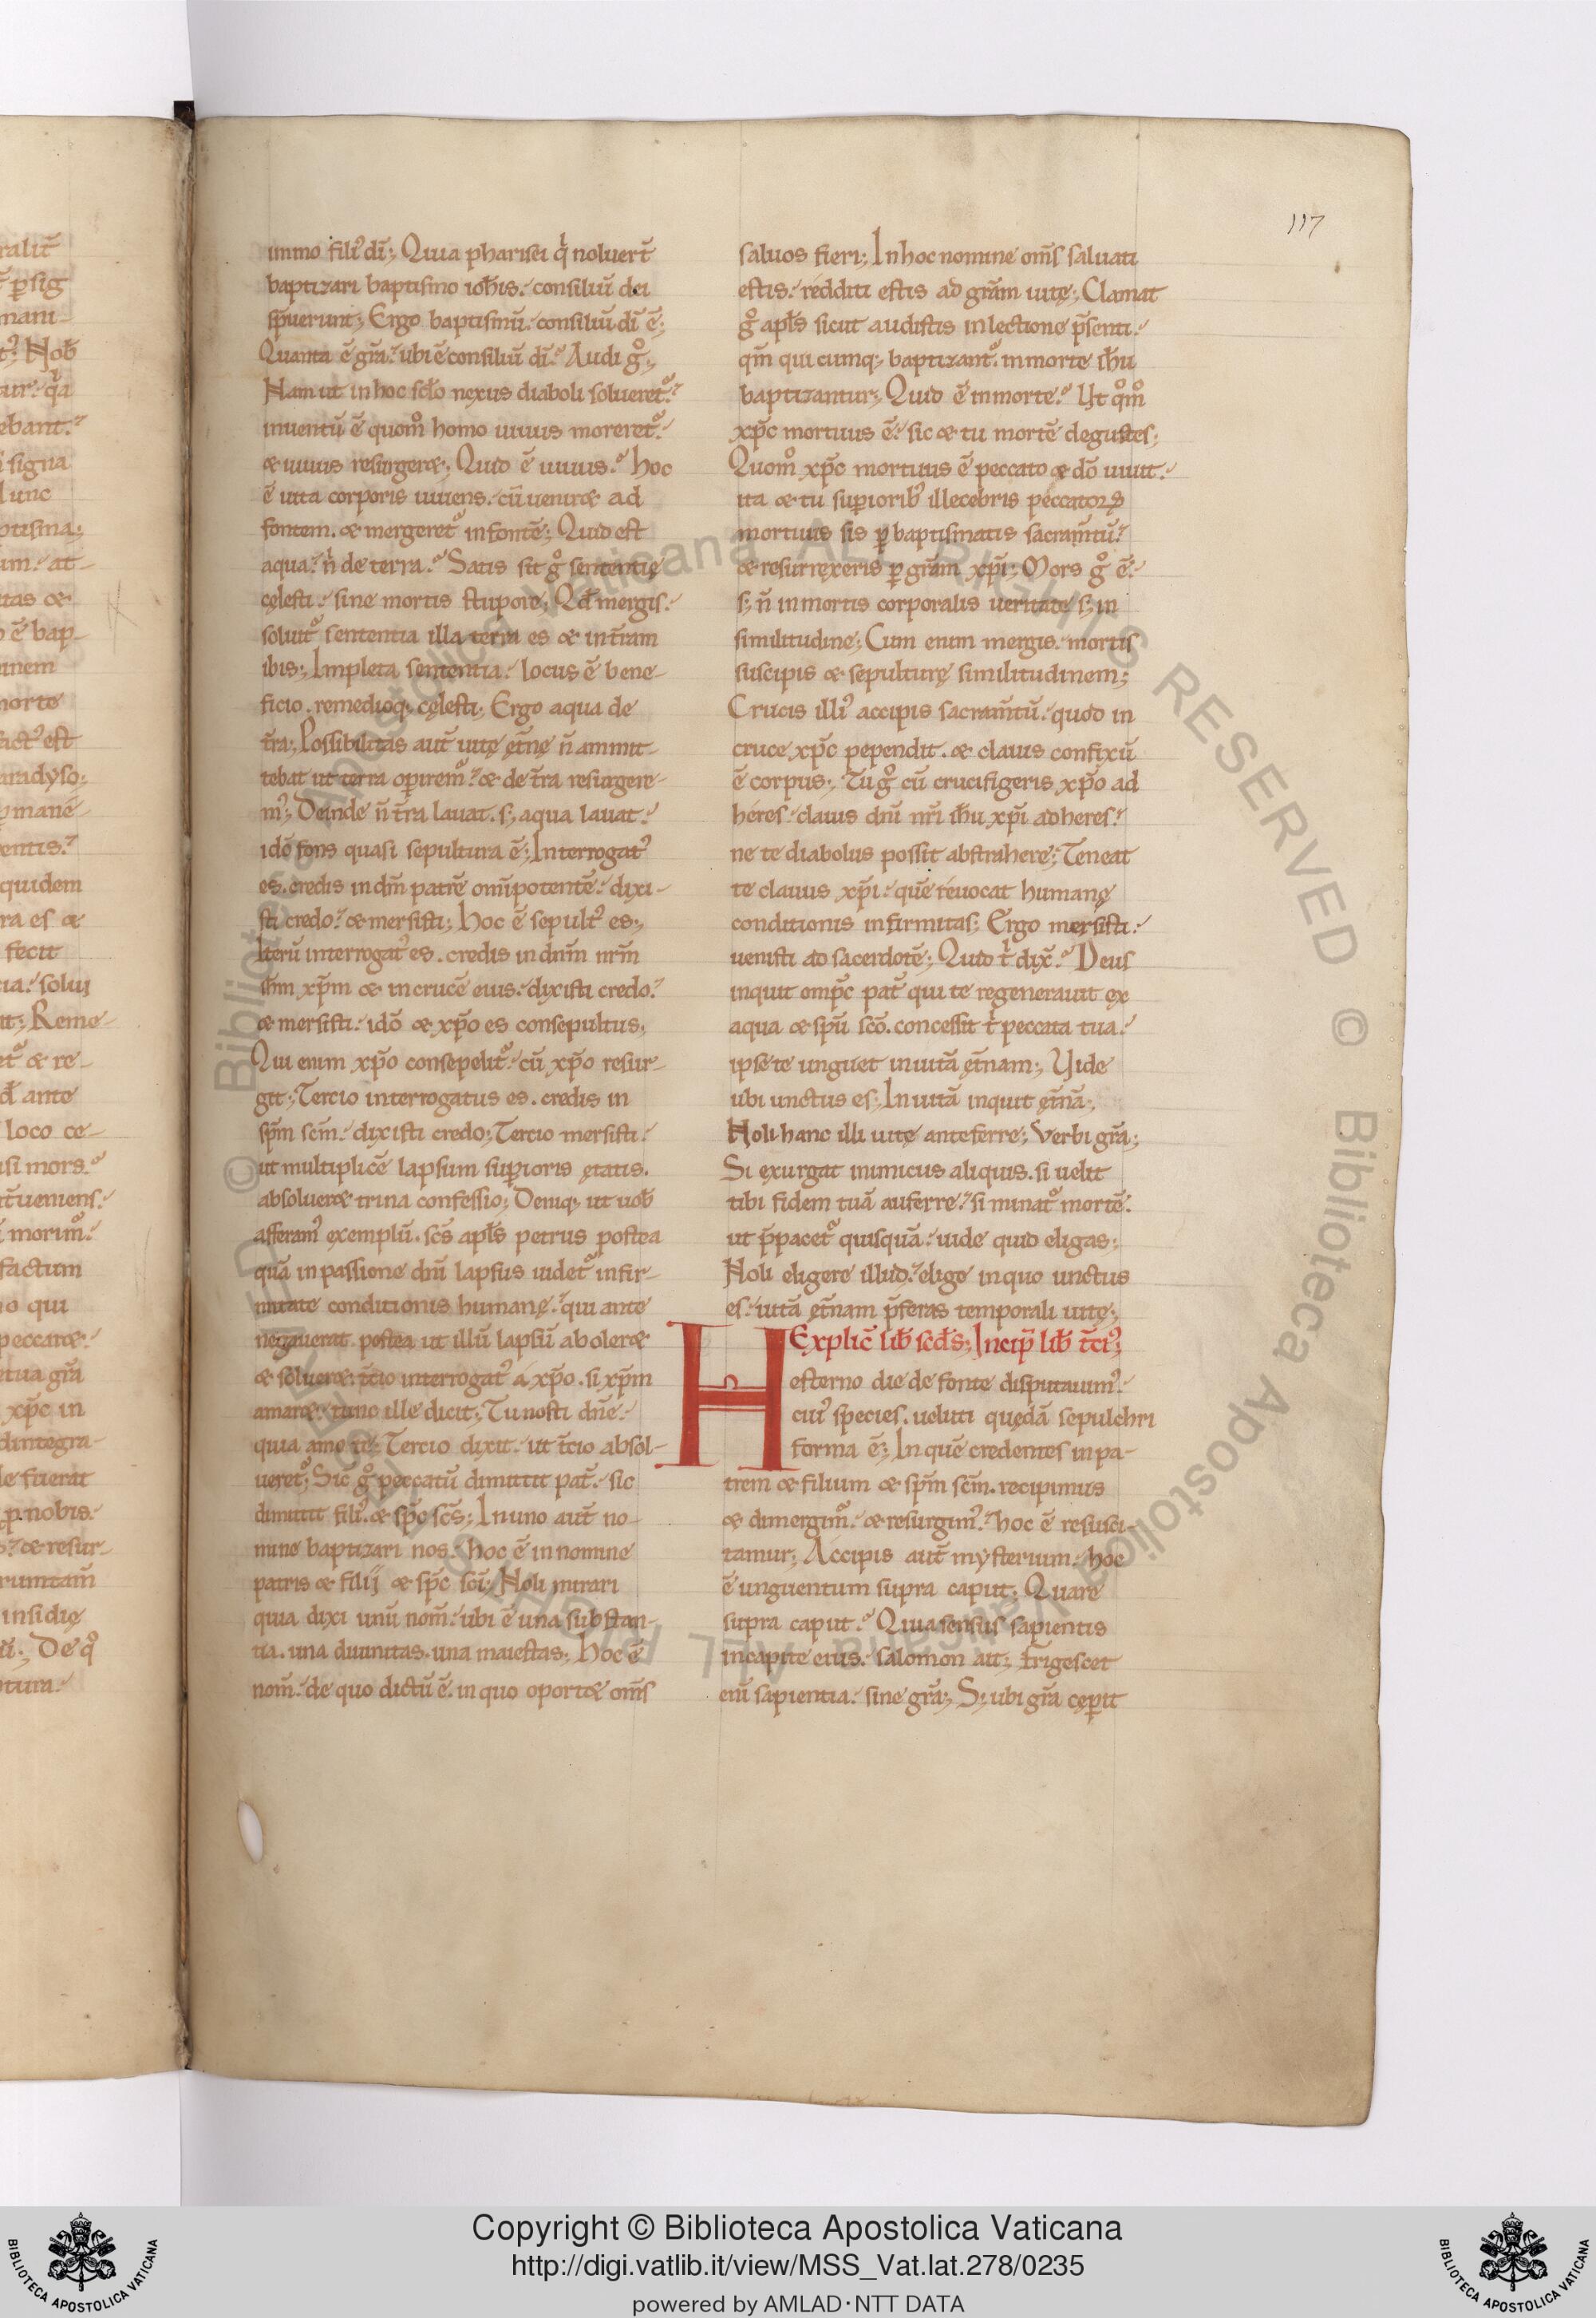 117
immo fili᾽ dī; Quia pharisei qͥ noluer̄t
baptizari baptismo ioh̄is. consiliū dei
sp̄uerunt; Ergo baptismū. consiliū dī ē;
Quanta ē gr̄a. ubi ē consiliū dī. Audi gͦ;
Nam ut in hoc sc̄lo nexus diaboli solueret᷑.
inuentū ē quom̊ homo uiuus moreret᷑.
& uiuus resurger&; Quid ē uiuus. hoc
ē uita corporis uiuens. cū uenir& ad
fontem. & mergeret᷑ in fontē; Quid est
aqua. n̄ de terra. Satis fit gͦ sententię
cęlesti. sine mortis stupore; Qd̄ mergis.
soluit᷑ sententia illa terra es & in t̄ram
ibis; Impleta sententia. locus ē bene-
ficio. remedioq; cęlesti; Ergo aqua de
t̄ra; Possibilitas aut̄ uitę ęt̄nę n̄ ammit-
tebat ut terra operirem᷑. & de t̄ra resurgere-
m᾽; Deinde n̄ t̄ra lauat. s; aqua lauat.
idō fons quasi sepultura ē; Interrogat᾽
es. credis in dm̄ patrē omīpotentē. dixi-
sti credo. & mersisti; hoc ē sepult᾽ es;
Iterū interrogat᾽ es. credis in dn̄m nr̄m
ih̄m xp̄m & in crucē eius. dixisti credo.
& mersisti. idō & xp̄o es consepultus;
Qui enim xp̄o consepelit᷑. cū xp̄o resur-
git; Tercio interrogatus es. credis in
sp̄m sc̄m. dixisti credo; Tercio mersisti.
ut multiplicē lapsum superioris ętatis.
absoluer& trina confessio; Deniq; ut uob̄
afferam᾽ exemplū. sc̄s apl̄s petrus postea
quā in passione dn̄i lapsus uidet᷑ infir-
mitate conditionis humanę. qui ante
negauerat. postea ut illū lapsū aboler&
& soluer&. t̄cio interrogat᾽ á xp̄o. si xp̄m
amar&. tunc ille dicit; Tu nosti dn̄e.
quia amo te; Tercio dixit. ut t̄cio absol-
ueret᷑; Sic gͦ peccatū dimittit pat̄. sic
dimittit fili᾽. & sp̄c sc̄s; In uno aut̄ no-
mine baptizari nos. hoc ē in nomine
patris & filij & sp̄c sc̄i; Noli mirari
quia dixi unū nom̄. ubi ē una substan-
tia. una diuinitas. una maiestas; Hoc ē
nom̄. de quo dictū ē. in quo oport& om̄s
saluos fieri; In hoc nomine om̄s saluati
estis. redditi estis ad gr̄am uitę; Clamat
gͦ apl̄s sicut audistis in lectione p̄senti.
qm̄ qui cumq; baptizant᷑. in morte ih̄u
baptizantur; Quid ē in morte. Ut qͦm̊
xp̄c mortuus ē. sic & tu mortē degustes;
Quom̊ xp̄c mortuus ē peccato & dō uiuit.
ita & tu superiorib᾽ illecebris peccatoꝝ
mortuus sis ꝑ baptismatis sacram̄tū.
& resurrexeris ꝑ gr̄am xp̄i; Mors gͦ ē.
s; n̄ in mortis corporalis ueritate s; in
similitudine; Cum enim mergis. mortis
suscipis & sepulturę similitudinem;
Crucis illi᾽ accipis sacram̄tū. quod in
cruce xp̄c pependit. & clauis confixū
ē corpus; Tu gͦ cū crucifigeris xp̄o ad
heres. clauis dn̄i nr̄i ih̄u xp̄i adheres.
ne te diabolus possit abstrahere; Teneat
te clauus xp̄i. quē reuocat humanę
conditionis infirmitas; Ergo mersisti.
uenisti ad sacerdotē; Quid tͥ dix̄. Deus
inquit omp̄c pat̄ qui te regenerauit ex
aqua & sp̄u sc̄o. concessit tͥ peccata tua.
ipse te unguet in uitā ęt̄nam; Vide
ubi unctus es; In uitā inquit ęt̄nā;
Noli hanc illi uitę anteferre; Verbi gr̄a;
Si exurgat inimicus aliquis. si uelit
tibi fidem tuā auferre. si minat᷑ mortē.
ut p̄pacet᷑ quisquā. uide quid eligas;
Noli eligere illud. elige in quo unctus
es. uitā ęt̄nam p̄feras temporali uitę;
Explic̄ lib̄ scd̄s; Incip̄ lib̄ t̄ci᾽;
Hesterno die de fonte disputauim᾽.
cui᾽ species. ueluti quędā sepulchri
forma ē; In quē credentes in pa-
trem & filium & sp̄m sc̄m. recipimus
& dimergim᷑. & resurgim᾽. hoc ē resusci-
tamur; Accipis aut̄ mysterium. hoc
ē unguentum supra caput; Quare
supra caput. Quia sensus sapientis
in capite eius. salomon ait; Frigescet
enī sapientia. sine gr̄a; S; ubi gr̄a cęperit
Copyright © Biblioteca Apostolica Vaticana
http://digi.vatlib.it/view/MSS_Vat.lat.278/0235
powered by AMLAD·NTT DATA
BIBLIOTECA APOSTOLICA VATICANA
BIBLIOTECA APOSTOLICA VATICANA